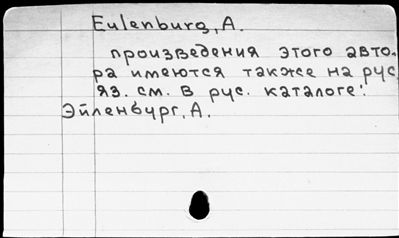 Eulenburg, A.
произведения этого авто-
ра имеются также на рус.
яз. см. в рус. каталоге:
Эйленбург, А.